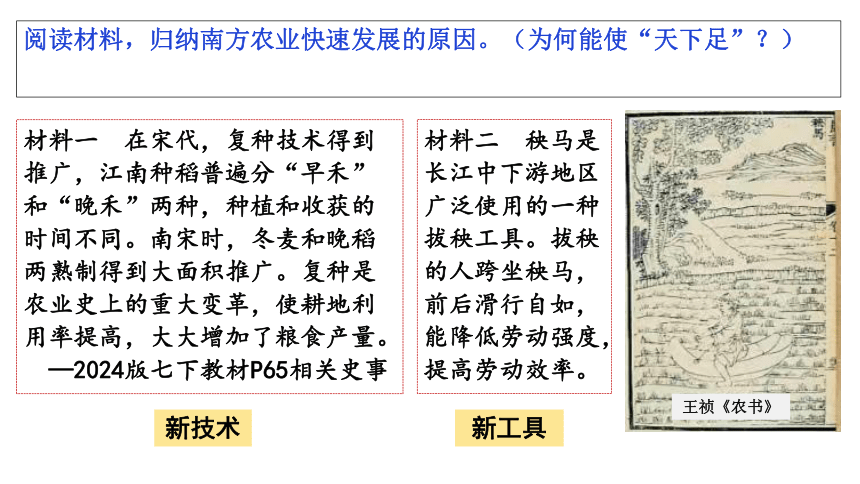 阅读材料，归纳南方农业快速发展的原因。（为何能使“天下足”？）
材料一　在宋代，复种技术得到
推广，江南种稻普遍分“早禾”
和“晚禾”两种，种植和收获的
时间不同。南宋时，冬麦和晚稻
两熟制得到大面积推广。复种是
农业史上的重大变革，使耕地利
用率提高，大大增加了粮食产量。
—2024版七下教材P65相关史事
材料二　秧马是
长江中下游地区
广泛使用的一种
拔秧工具。拔秧
的人跨坐秧马，
前后滑行自如，
能降低劳动强度，
提高劳动效率。
秧马
王祯《农书》
新技术
新工具